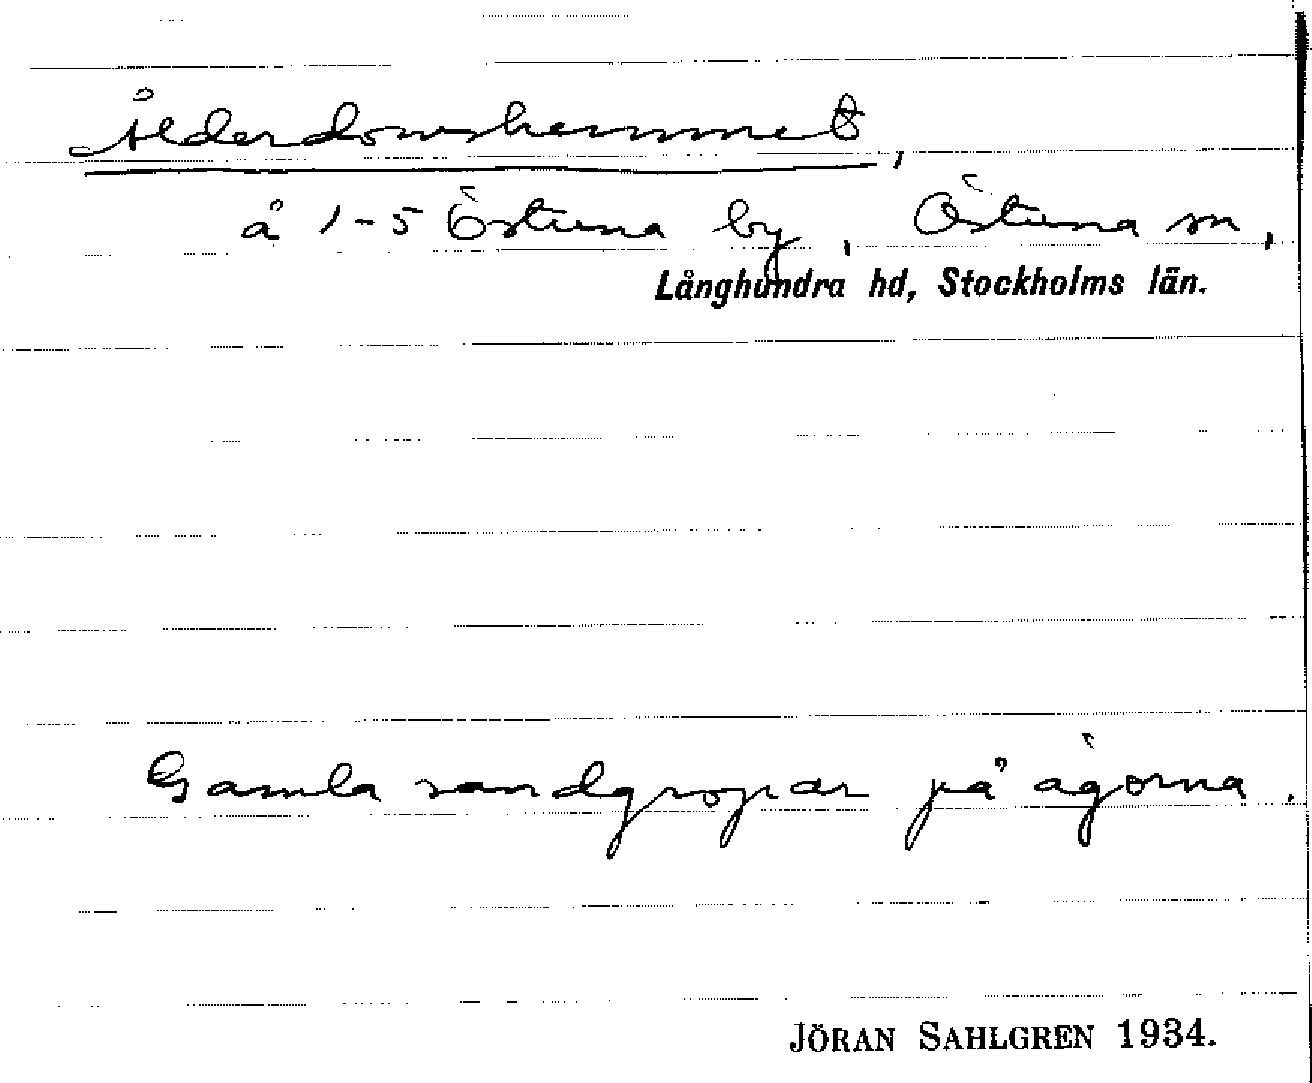 Ålderdomshemmet,
å 1-5 Östuna by, Östuna sn,
Långhundra hd, Stockholms län.
Gamla sandgropar på ägorna.
JÖRAN SAHLGREN 1934.